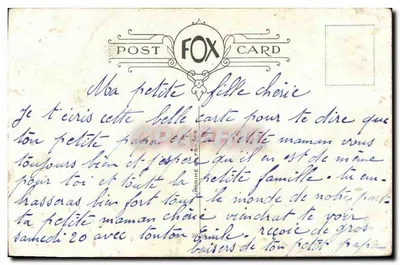 POST FOX CARD
Ma petite fille chérie
Je t'écris cette belle carte pour te dire que
ton petite papa et ta petite maman vous
toujours bien et j'espère qu'il en est de même
pour toi et toute la petite famille. tu em-
brasseras bien fort tous le monde de notre part
ta petite maman chérie viendrat te voir
samedi 20 avec tonton Emile. reçoie de gros
baisers de ton petit papa